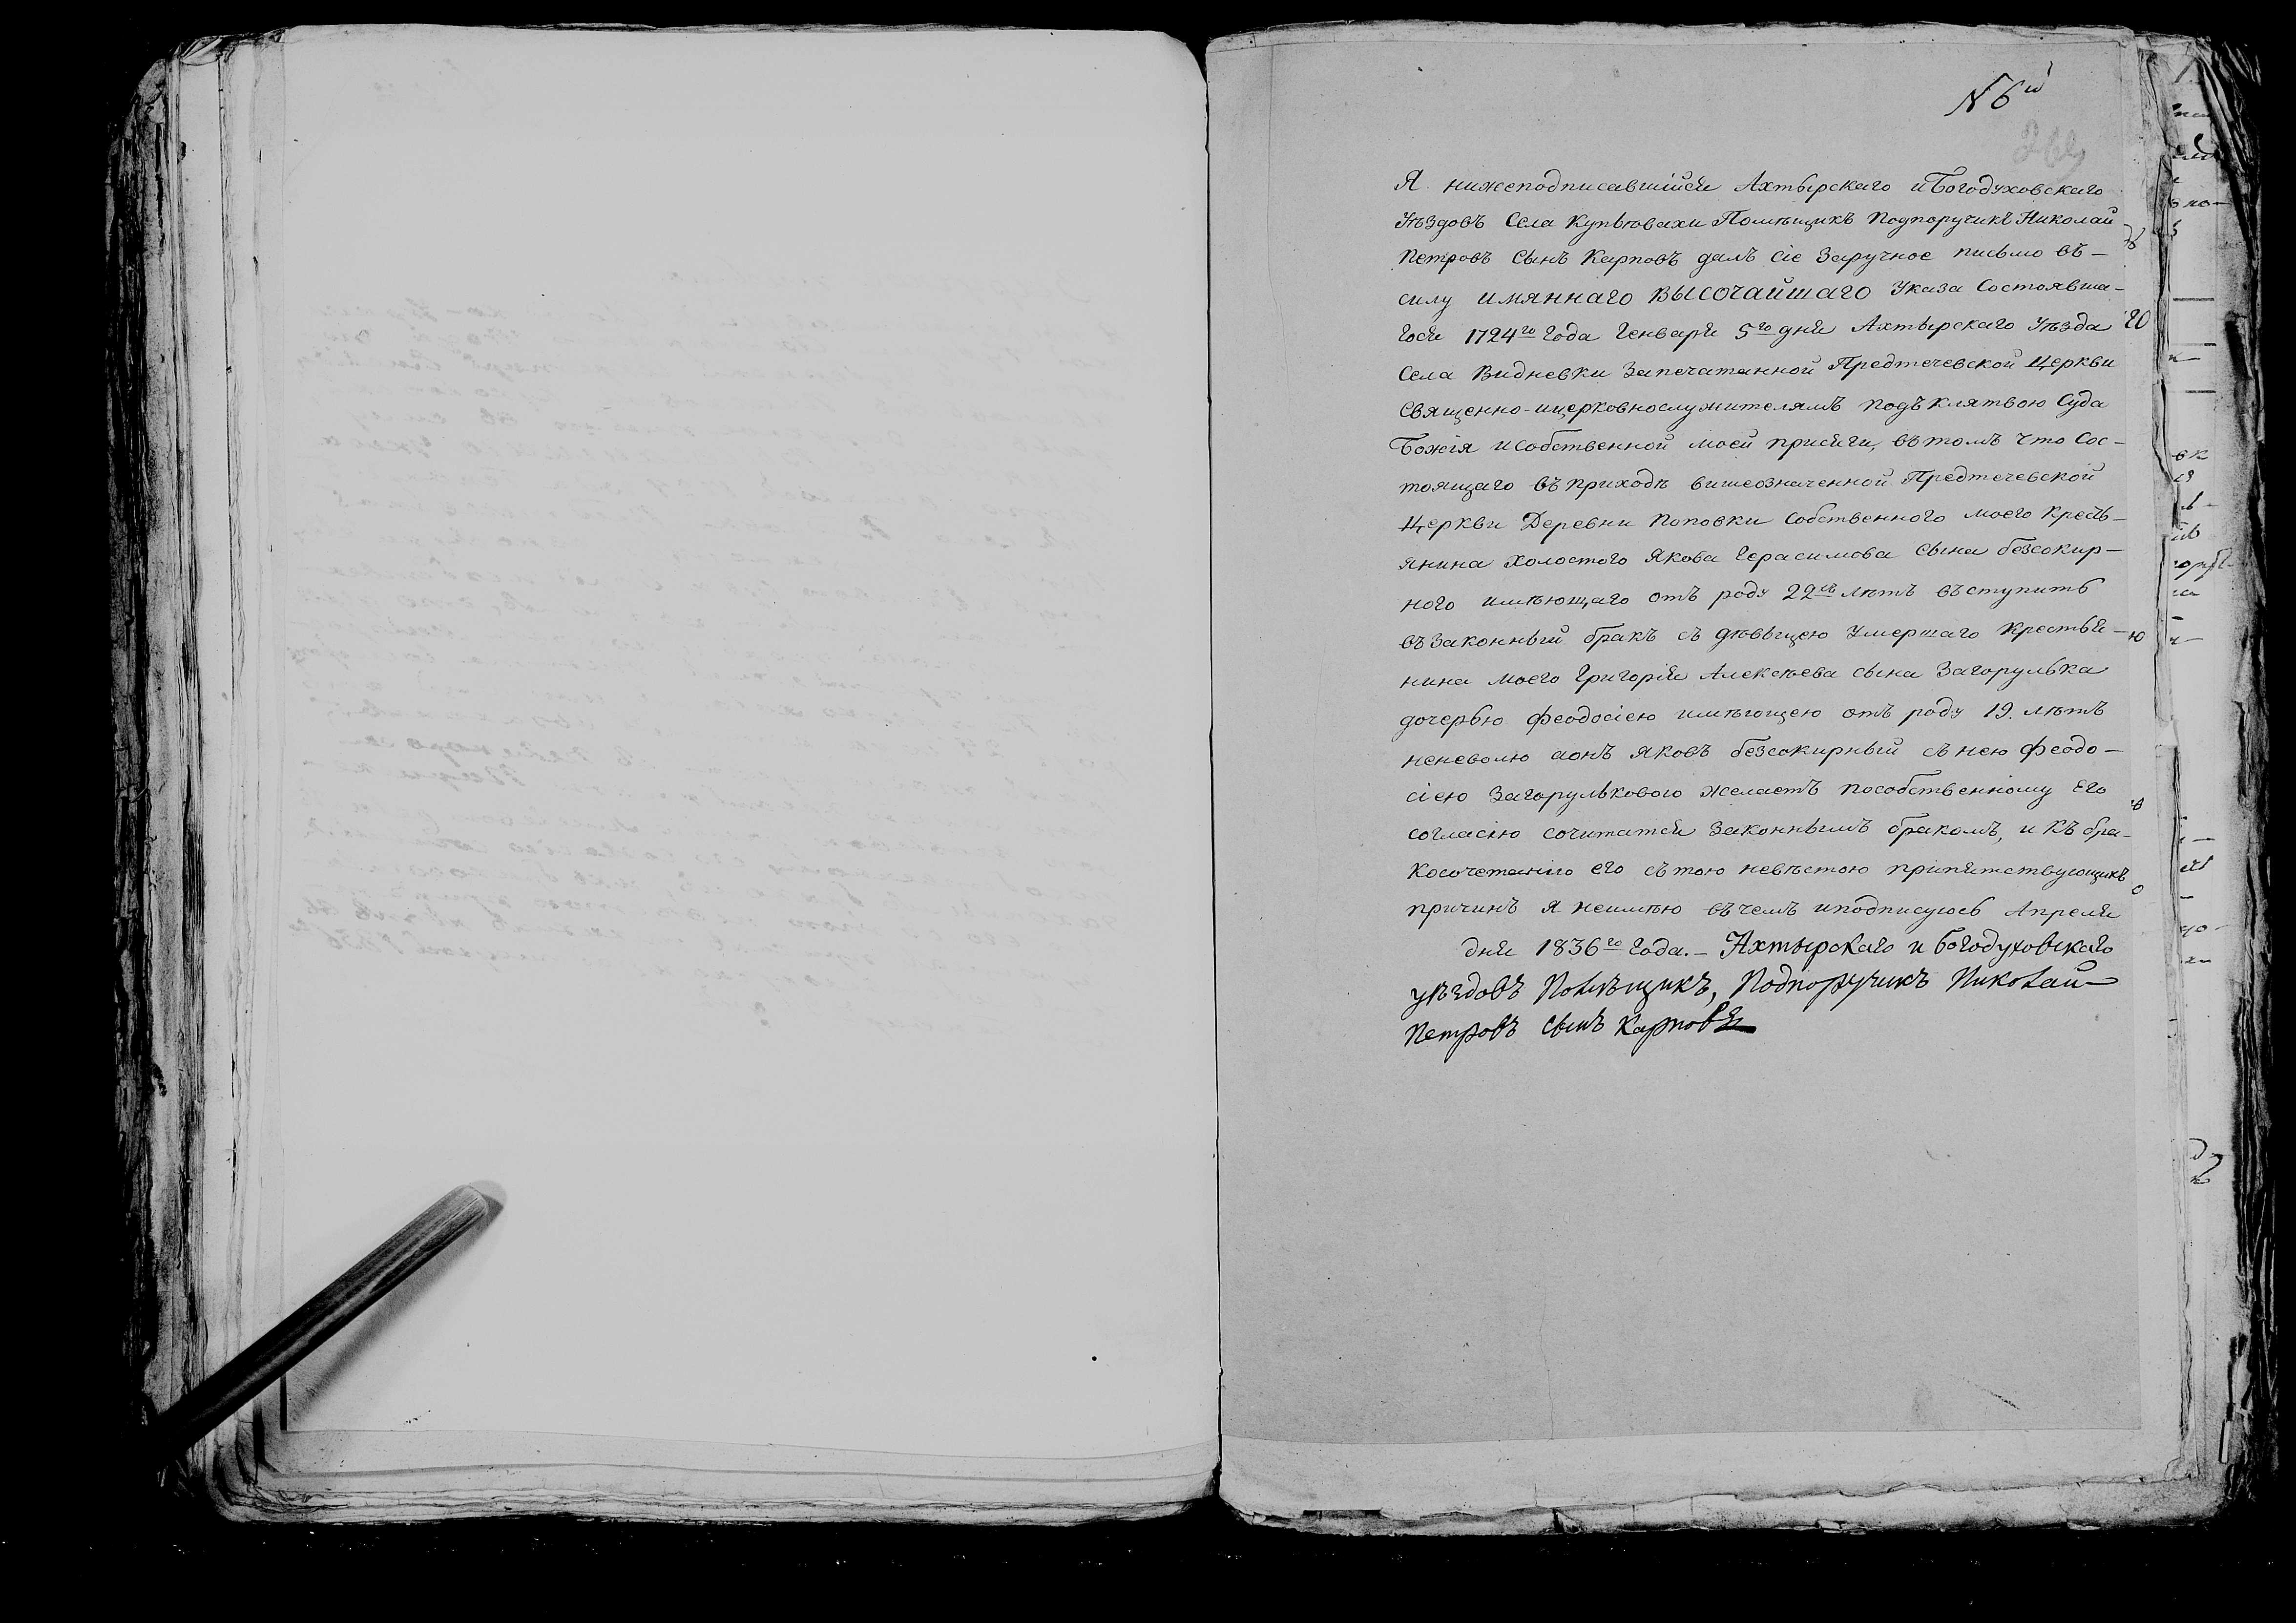 N 6й
269
Я нижеподписавшійся Ахтырскаго и Богодуховскаго
Уѣздовъ Села Купьювахи Помѣщикъ Подпоручикъ Николай
Петровъ Сынъ Карповъ далъ сіе Заручное письмо въ–
силу имяннаго ВЫСОЧАЙШАГО Указа Состоявша–
гося 1724го года Генваря 5го дня Ахтырскаго Уѣзда
Села Видневки Запечатанной Предтечевской Церкви
Священно-ицерковнослужителямъ подъ клятвою Суда
Божія исобственной моей присяги, вътомъ что Сос–
тоящаго въ приходѣ вишеозначенной Предтечевской
Церкви Деревни Поповки Собственного моего Кресть–
янина Холостого Якова Герасимова Сына безсокир–
ного имѣющаго отъ роду 22хъ лѣтъ въступить
въ Законный бракъ съ дѣвыцею Умершаго Крестья–
нина моего Григорія Алексѣева сына Загорулька
дочерью феодосіею имѣющею отъ роду 19. лѣтъ
неневолю аонъ Яковъ безсокирный съ нею феодо–
сіею Загорульковою желаетъ пособственному Его
согласію сочитатся Законнымъ бракомъ, и Къ бра–
косочетанію его сътою невѣстою припятствующихъ
причинъ я неимѣю въчемъ иподписуюсь Апреля
дня 1836го года.– Ахтырскаго и Богодуховскаго
уѣздовъ Помѣщикъ, Подпоручикъ Николай
Петровъ сынъ Карповъ